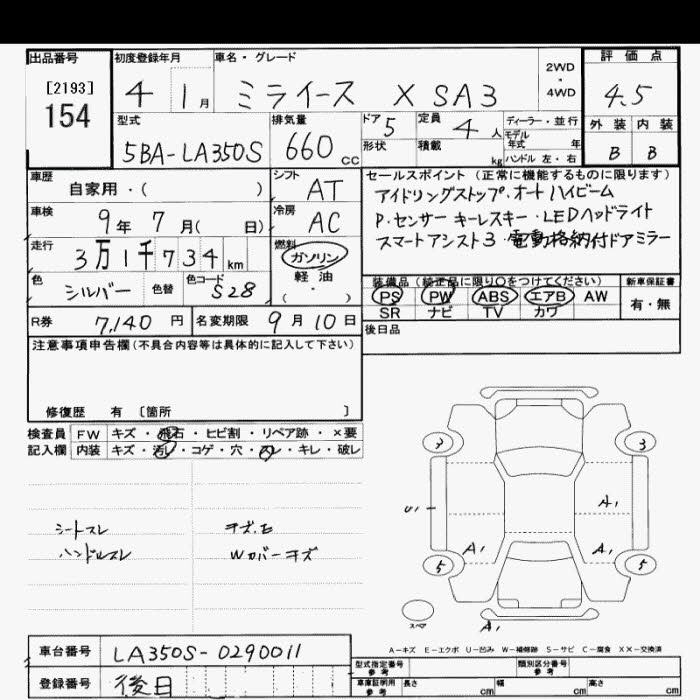 出品番号
[2193]
154
初度登録年月
4 1月
車名・グレード
ミライース X SA3
2WD
・
4WD
評価点
4.5
型式
5BA-LA350S
排気量
660 cc
ドア 5
定員 4 人
形状
積載 kg
ディーラー・並行
モデル年式 年
ハンドル 左・右
外装 内装
B B
車歴
自家用・( )
シフト
AT
車検
9年 7月( 日)
冷房
AC
走行
3万1千734km
燃料
ガソリン
軽・油
・( )
色
シルバー
色替
色コード
S28
R券 7,140円
名変期限 9月10日
セールスポイント(正常に機能するものに限ります)
アイドリングストップ・オートハイビーム
P・センサー キーレスキー・LEDヘッドライト
スマートアシスト3・電動格納付ドアミラー
装備品(純正品に限り○をつけてください)
PS PW ABS エアB AW
SR ナビ TV カワ
新車保証書
有・無
後日品
注意事項申告欄(不具合内容等は具体的に記入して下さい)
修復歴 有 [箇所 ]
検査員
記入欄
FW キズ・飛石・ヒビ割・リペア跡・×要
内装 キズ・汚レ・コゲ・穴・スレ・キレ・破レ
シートスレ
ハンドルスレ
Wカバーキズ
3 3
A1
U1
A1 A1
5 5
スペア
A1
A-キズ E-エクボ U-凹み W-補修跡 S-サビ C-腐食 XX-交換済
車台番号 LA350S-0290011
登録番号 後日
型式指定番号
参考
類別区分番号
参考
車庫証明用
参考
長さ cm 幅 cm 高さ cm